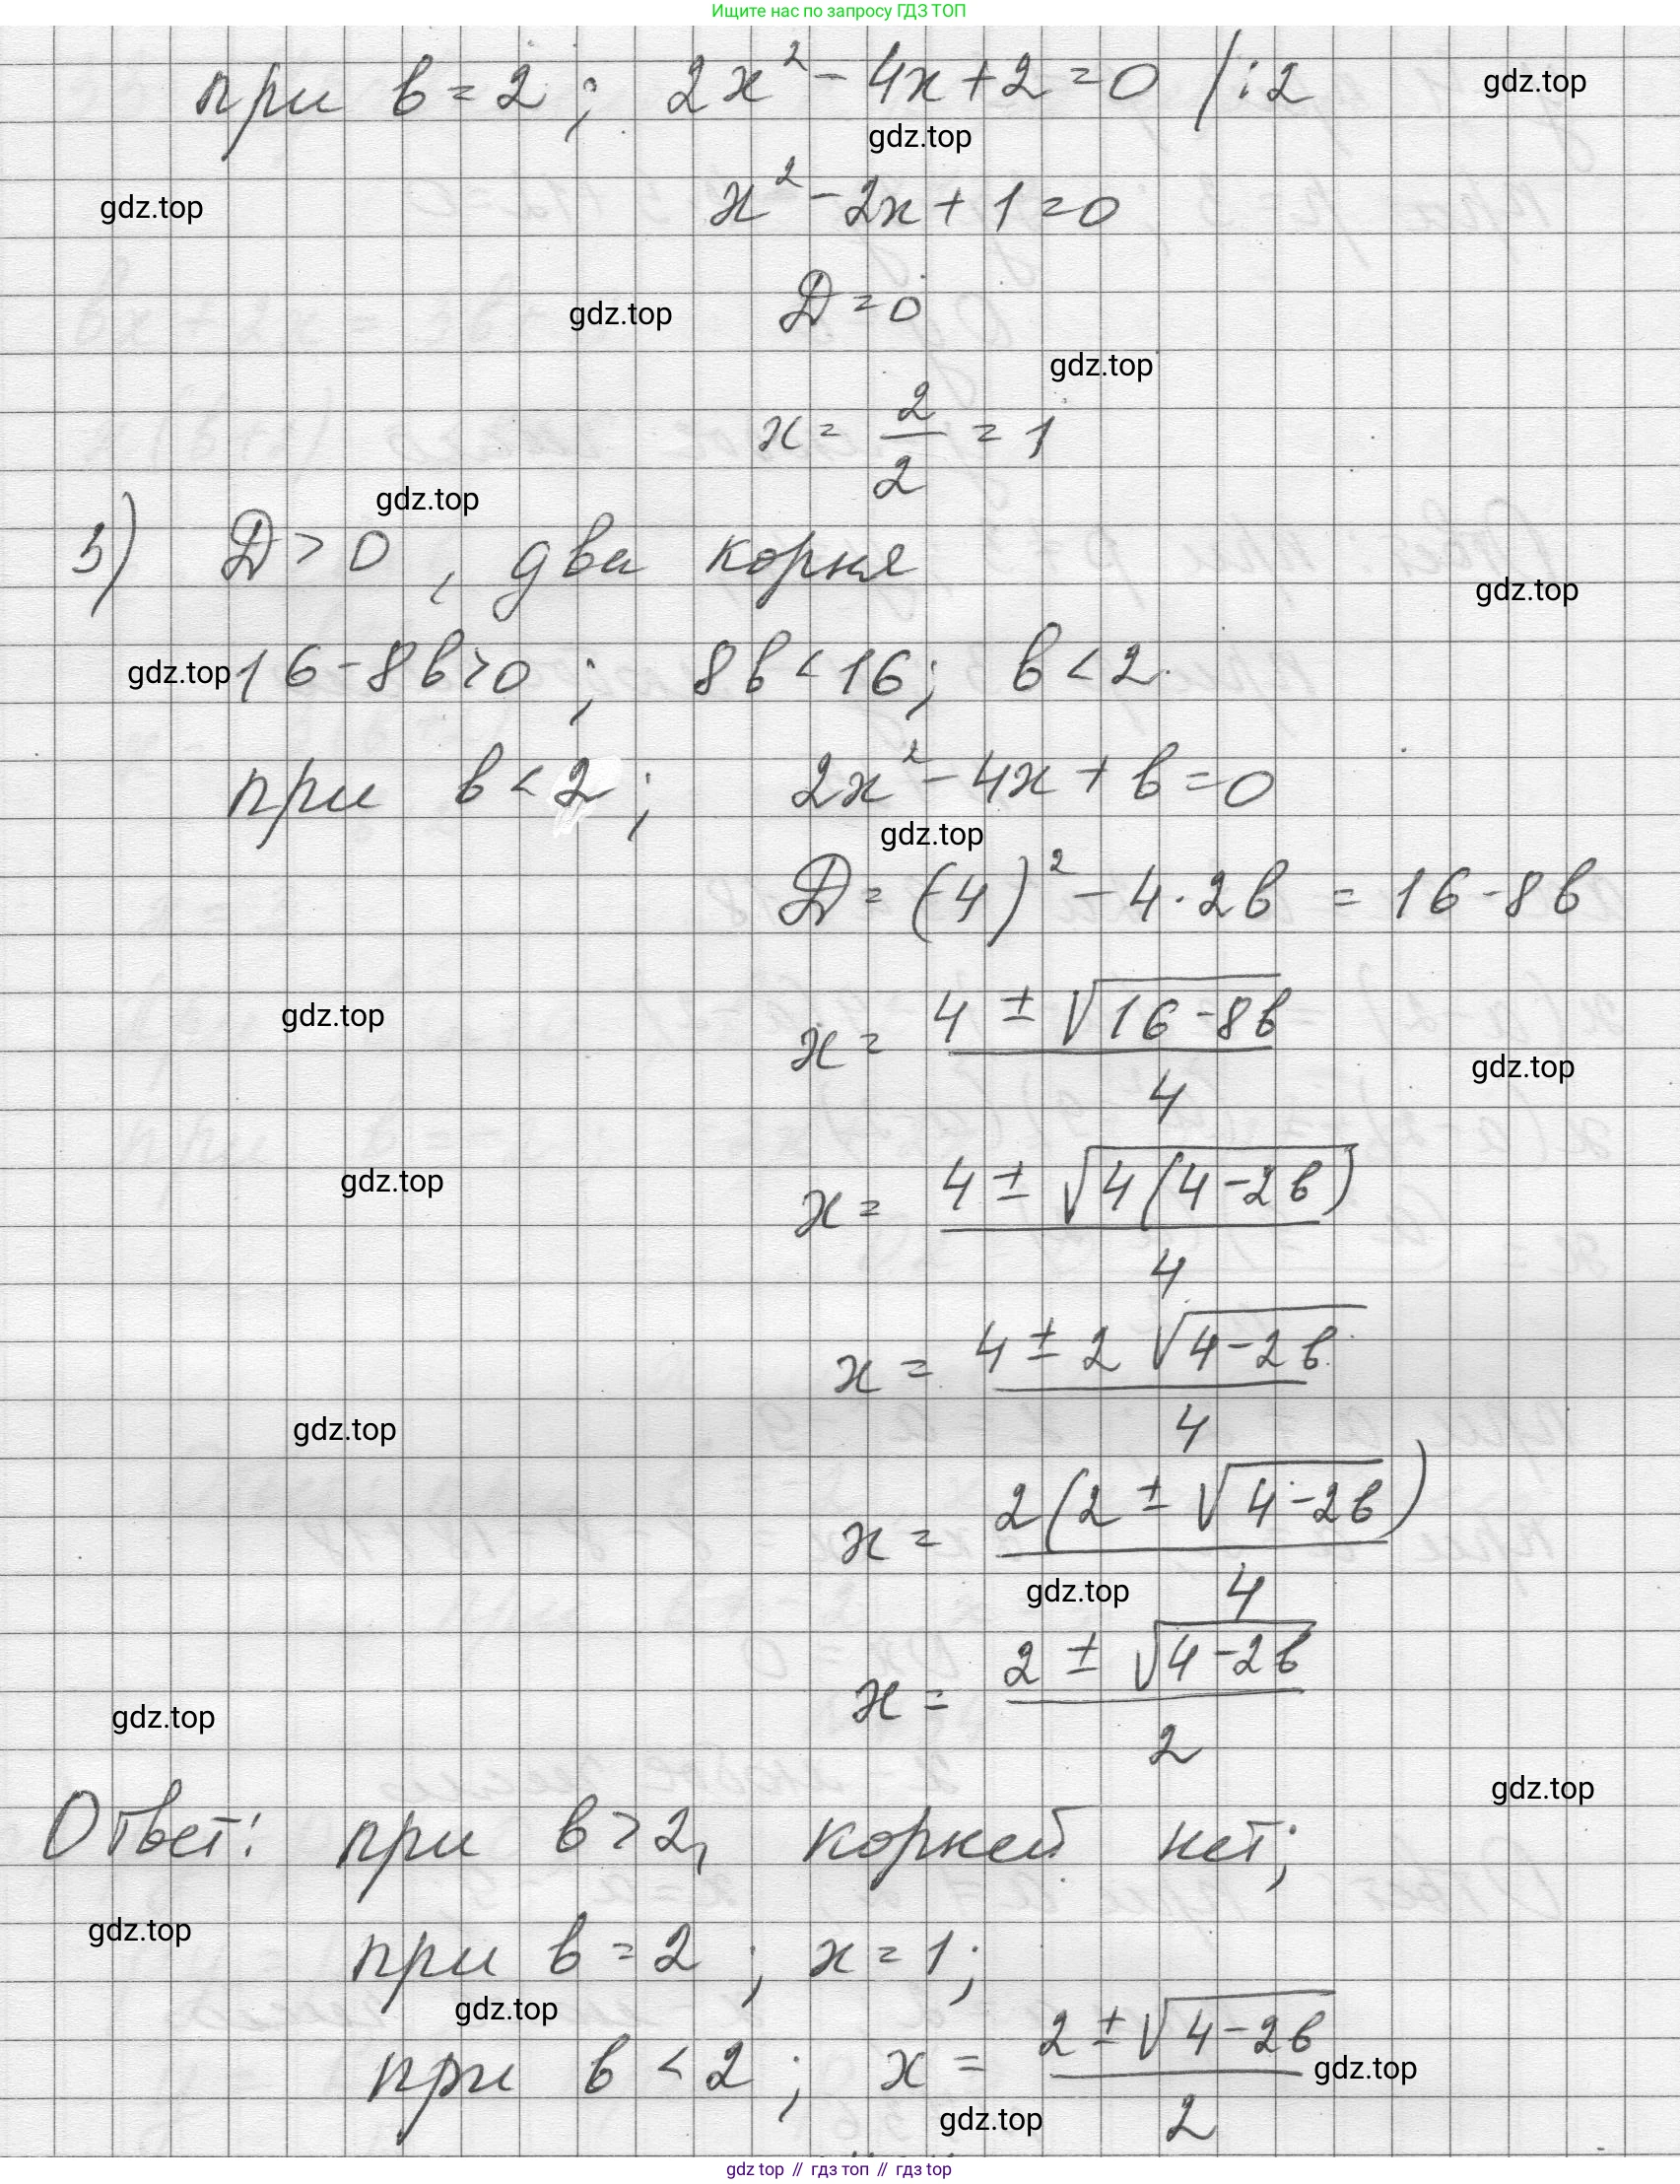 Ищите нас по запросу ГДЗ ТОП
при b = 2 ; 2x² - 4x + 2 = 0 / : 2
gdz.top
gdz.top
x² - 2x + 1 = 0
gdz.top
D = 0
gdz.top
gdz.top
x = 2/2 = 1
gdz.top
3) D > 0 , два корня
gdz.top
gdz.top
16 - 8b > 0 ; 8b < 16 ; b < 2
при b < 2 ; 2x² - 4x + b = 0
gdz.top
D = (-4)² - 4 · 2b = 16 - 8b
gdz.top
x = (4 ± √(16 - 8b))/4
gdz.top
gdz.top
x = (4 ± √(4(4 - 2b)))/4
x = (4 ± 2√(4 - 2b))/4
gdz.top
x = (2(2 ± √(4 - 2b)))/4
gdz.top
x = (2 ± √(4 - 2b))/2
gdz.top
gdz.top
Ответ: при b > 2, корней нет;
gdz.top
при b = 2 ; x = 1 ;
gdz.top
при b < 2 ; x = (2 ± √(4 - 2b))/2
gdz.top
gdz.top
gdz top // гдз топ // гдз top